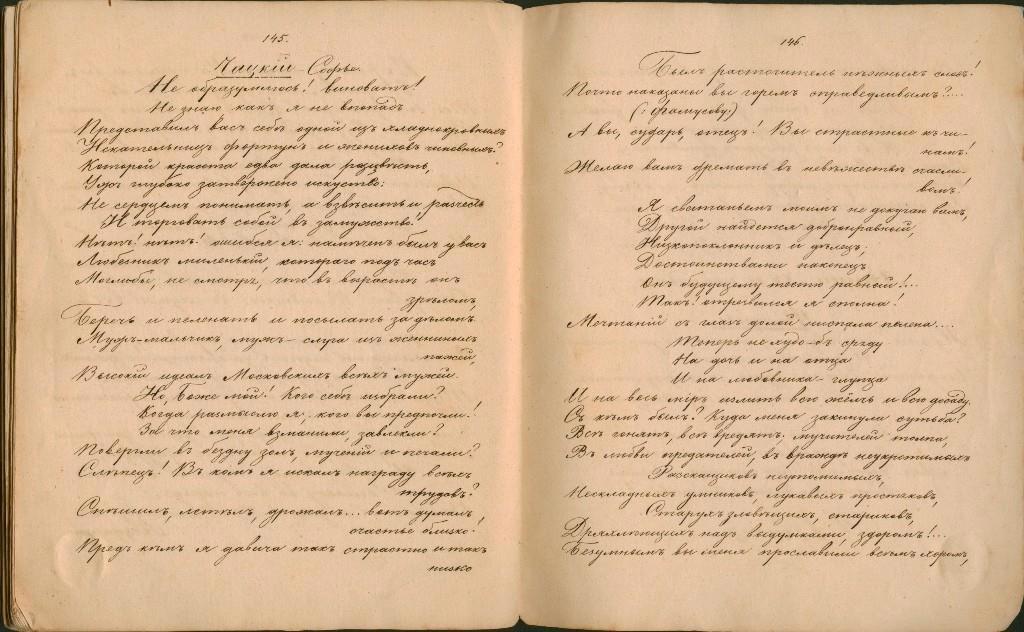 145.
Чацкій – Софьѣ.
Не образумлюсь! виноватъ!
Не знаю какъ я не впопадъ
Представилъ васъ себѣ одной изъ хладнокровныхъ
Искательницъ фортунъ и жениховъ чиновныхъ?
Которой красота едва дала разцвѣсть,
Ужъ глубоко затвержено искуство:
Не сердцемъ понимать, а взвѣсить и расчесть
И торговать собой въ замужство!
Нѣтъ! нѣтъ! ошибся я: намѣченъ былъ у васъ
Любезникъ миленькій, котораго подъ часъ
Моглибы, не смотря, что въ возрастѣ онъ
зрѣломъ
Беречь и пеленать и посылать за дѣломъ
Мужъ-мальчикъ, мужъ-слуга изъ жениныхъ
пажей,
Высокій идеалъ Московскихъ всѣхъ мужей.
Но, Боже мой! Кого себѣ избрали?
Когда размыслю я, кого вы предпочли!
За что меня взманили, завлекли?
Повергли въ бездну золъ, мученій и печали?
Слѣпецъ! Въ комъ я искалъ награду всѣхъ
трудовъ?
Спѣшилъ, летѣлъ, дрожалъ... вотъ думалъ
счастье близко!
Предъ кѣмъ я давича такъ страстно и такъ
низко
146.
Былъ расточитель нѣжныхъ словъ!
Почто наказаны вы горемъ справедливымъ?....
(: Фамусову)
А вы, сударь, отецъ! Вы страстные къ чи-
намъ!
Желаю вамъ дремать въ невѣжествѣ счасли-
вомъ!
Я сватаньемъ моимъ не докучаю вамъ,
Другой найдется добронравный,
Низкопоклонникъ и дѣлецъ;
Достоинствами наконецъ
Онъ будущему тестю равный!...
Такъ! отрезвился я сполна!
Мечтаній съ глазъ долой ниспала пелена....
Теперь не худо-бъ сряду
На дочь и на отца
И на любовника-глупца
И на весь міръ излить всю жёлчь и всю досаду.
Съ кѣмъ былъ? Куда меня закинула судьба?
Всѣ гонятъ, всѣ вредятъ, мучителей толпа,
Въ любви предателей, въ враждѣ неукротимыхъ
Разскащиковъ неутомимыхъ,
Нескладныхъ умниковъ, лукавыхъ простяковъ,
Старухъ зловѣщихъ, стариковъ,
Дряхлѣющихъ надъ выдумками, здоромъ!...
Безумнымъ вы меня прославили всѣмъ хоромъ,